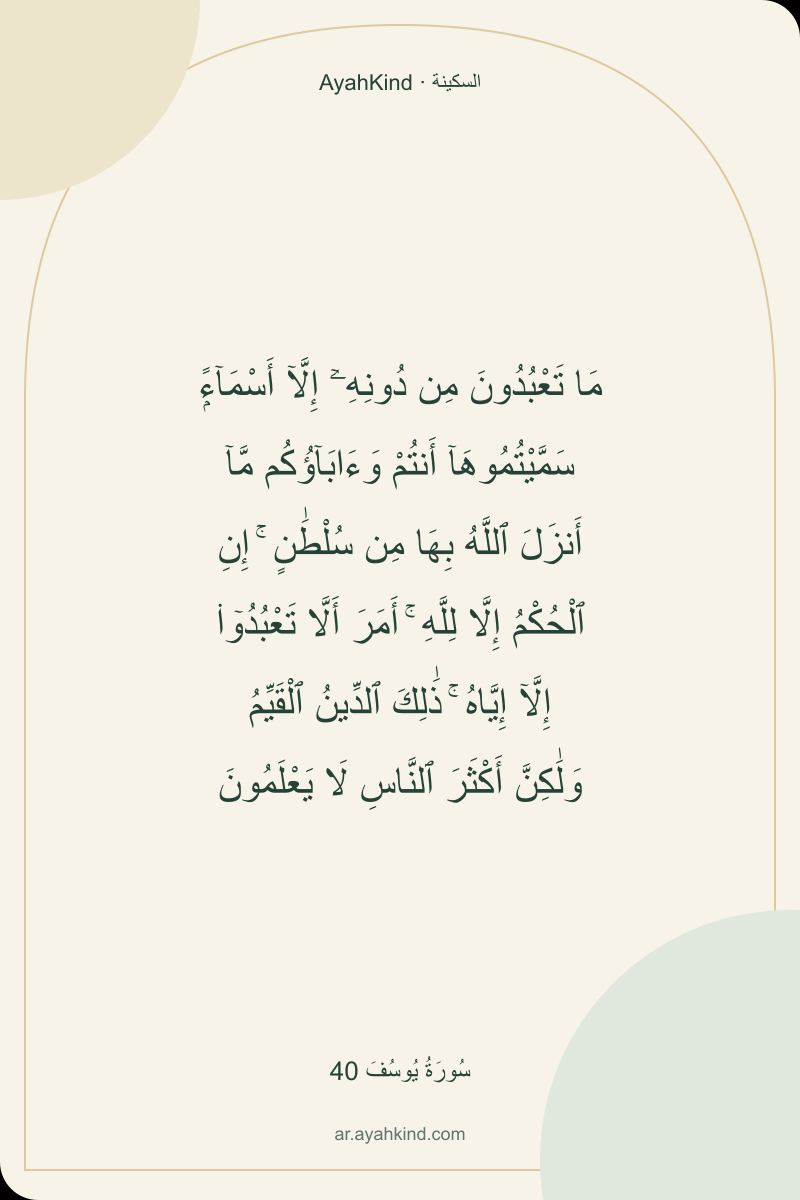 AyahKind · السكينة
مَا تَعْبُدُونَ مِن دُونِهِۦٓ إِلَّآ أَسْمَآءًۭ
سَمَّيْتُمُوهَآ أَنتُمْ وَءَابَآؤُكُم مَّآ
أَنزَلَ ٱللَّهُ بِهَا مِن سُلْطَٰنٍ ۚ إِنِ
ٱلْحُكْمُ إِلَّا لِلَّهِ ۚ أَمَرَ أَلَّا تَعْبُدُوٓا۟
إِلَّآ إِيَّاهُ ۚ ذَٰلِكَ ٱلدِّينُ ٱلْقَيِّمُ
وَلَٰكِنَّ أَكْثَرَ ٱلنَّاسِ لَا يَعْلَمُونَ
سُورَةُ يُوسُفَ 40
ar.ayahkind.com